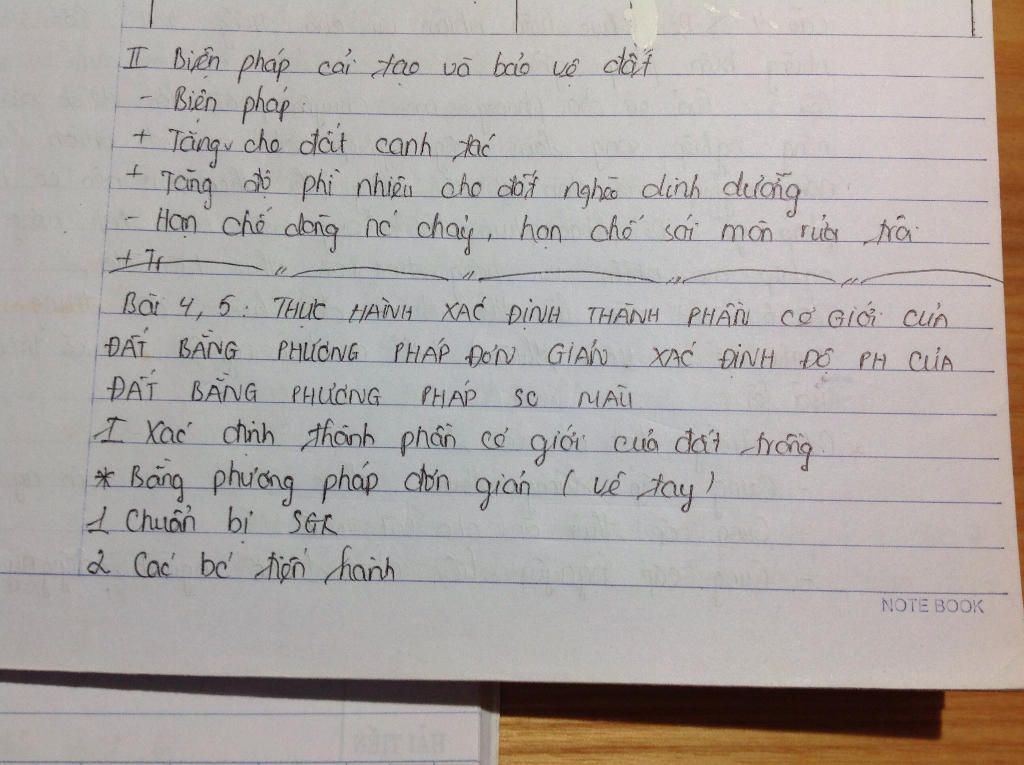 II Biện pháp cải tạo và bảo vệ đất
- Biện pháp
+ Tăng cho đất canh tác
+ Tăng độ phì nhiêu cho đất nghèo dinh dưỡng
- Hạn chế dòng nc chảy, hạn chế sói mòn rửa trôi
+ Tr
Bài 4, 5 : THỰC HÀNH XÁC ĐỊNH THÀNH PHẦN CƠ GIỚI CỦA
ĐẤT BẰNG PHƯƠNG PHÁP ĐƠN GIẢN. XÁC ĐỊNH ĐỘ PH CỦA
ĐẤT BẰNG PHƯƠNG PHÁP SO MÀU
I Xác định thành phần cơ giới của đất trồng
* Bằng phương pháp đơn giản ( vê tay )
1 Chuẩn bị SGK
2 Các bc tiến hành
NOTE BOOK
HẢI TIẾN